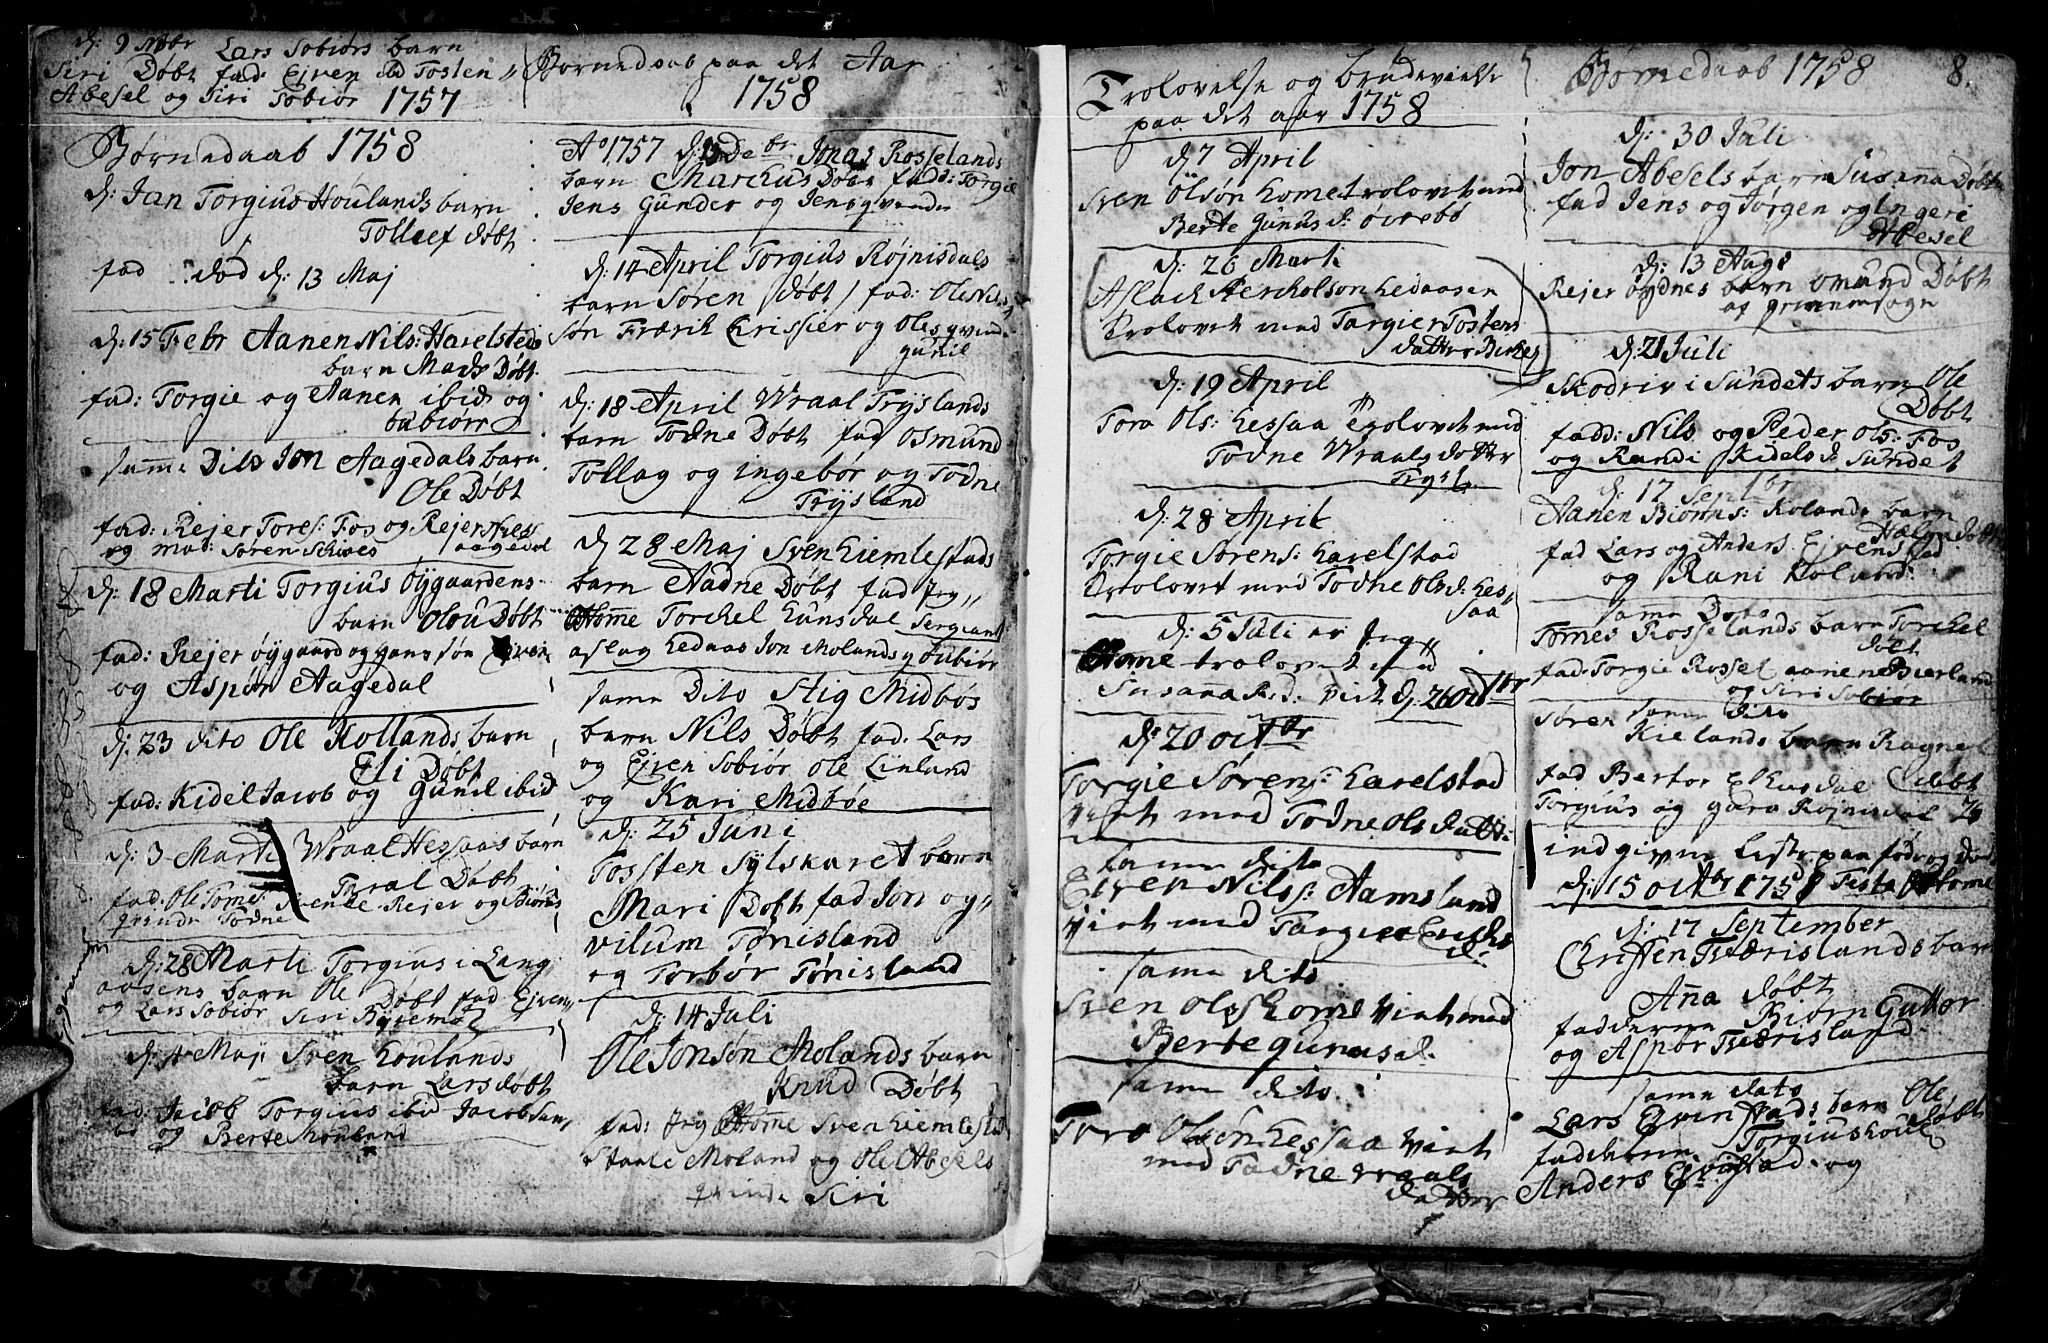 d: 9 Nobr Lars Sobiørs barn
Siri Døbt fad: Ejven ibd Tosten
Abesel og Siri Sobiør 1757
Børnedaab 1758
d: Jan Torgius Houlands barn
Tollef døbt
fad død d: 13 Maj
d: 15 Febr Aanen Nils: Harelsteds
barn Mads Døbt
fad: Torgie og Aanen ibid og
Sobiør
samme Dito Jon Aagedals barn
Ole Døbt
fad: Rejer Tores: Fos og Rejer Niels
og mad: Søren Aagedal
d: 18 Marti Torgius Øygaardens
barn Olou Døbt
fad: Rejer øygaard og hans søn
og Aspør Aagedal
d: 23 dito Ole Kollands barn
Eli Døbt
fad: Kidel Jacob og Gunil ibid
d: 3 Marti Wraal Hessaas barn
Taral Døbt
fad: Ole Tomes: Rejer og Biørns
qvinde Todne
d: 28 Marti Torgius i Lang
aasens barn Ole Døbt fad Ejven
og Lars Sobiør Siri
d: 4 Maj Sven Houlands
barn Lars døbt
fad: Jacob Torgius ibid Jacob
og Berte Houland
Børnedaab paa det Aar
1758
Ao 1757 d: Debr Jonas Rosselands
barn Marchus Døbt fadd: Torgie
Jens Gunder og Jens qvinde
d: 14 April Torgius Røjnisdals
barn Søren (døbt) fad: Ole Nils
søn Frærik Crissier og Oles qvinde
gunil
d: 18 April Wraal Trÿslands
barn Todne Døbt fad Osmund
Tollag og ingebør og Todne
Trÿsland
d 28 Maj Sven Hiemlestads
barn Aadne Døbt fad Jeg
Home Torchel Kunsdal Sergiant
aslag hedaas Jon Molands q Sobiør
samme Dito Stig Midbøs
barn Nils Døbt fad: Lars
og Ejven Sobiør Ole Linland
og Kari Midbøe
d: 25 Juni
Tossten Sÿlskaret barn
Mari Døbt fad Jon og
vilum Tønisland
og Torbør Tønisland
d: 14 Juli
Ole Jonsøn Molands barn
Knud Døbt
fad: Jeg Home Sven Hiemlestad
Staale Moland og Ole Abesels
qvinde Siri
Trolovelse og brudevielse
paa det aar 1758
d 7 April
Sven Olsøn Home trolovet med
Berte Gunus d: øvrebø
d: 26 Marti
Aslach Hercholson hedaasen
trolovet med Targier Tostens
datter Birke
d: 19 April
Tore Ols: Hessaa trolovet med
Todne Wraals datter
Trÿsl.
d: 28 April
Torgie Sørens: harelstad
trolovet med Todne Ols d: hes
saa
d: 5 Juli er Jeg
Home trolovet med
Susanna viet d: 26 Octbr
d: 20 octbr
Torgie Sørens: harelstad
viet med Todne Ols datt:
samme dito
Ejven Nils: Aamsland
viet med Targier
samme dito
Sven Ols: home viet med
Berte gunus d.
samme dito
Tore Olsen hessaa viet
med Todne Wraals
datter
Børnedaab 1758 8.
d: 30 Juli
Jon Abesels barn Susanna Døbt
fad Jens og Jørgen og Ingeri
Abesel
d: 13 Aug:
Rejer øydnes barn Omund Døbt
af grimmsogn
d: 21 Juli
Skodriv i Sundets barn Ole
Døbt
fadd: Nils og Peder Ols: Fos
og Randi Kidels d Sundet
d: 17 Septbr
Aanen Biørns: Kolands barn
Hælga Døbt
fad Lars og Anders Ejvenstad
og Rani Koland:
samme Dato
Tomes Rosselands barn Torchel
Døbt
fad: Torgie Rossel aanen Bierland
og Siri Sobiør
samme dito
Søren Kielands barn Ragnel
døbt
fad Berton Elkusdal
Torgius og gura Røjnisdal
indgiven Liste paa føde og døde
d: 15 octbr 1758 Testa Home
d: 17 September
Christen Tværislands barn
Anna døbt
fadderne Biørn Guttor
og Aspør Tværisland
samme dato
Lars Ejvinstads barn Ole
døbt
fadderne Torgius houl
Anders Ejvistad og